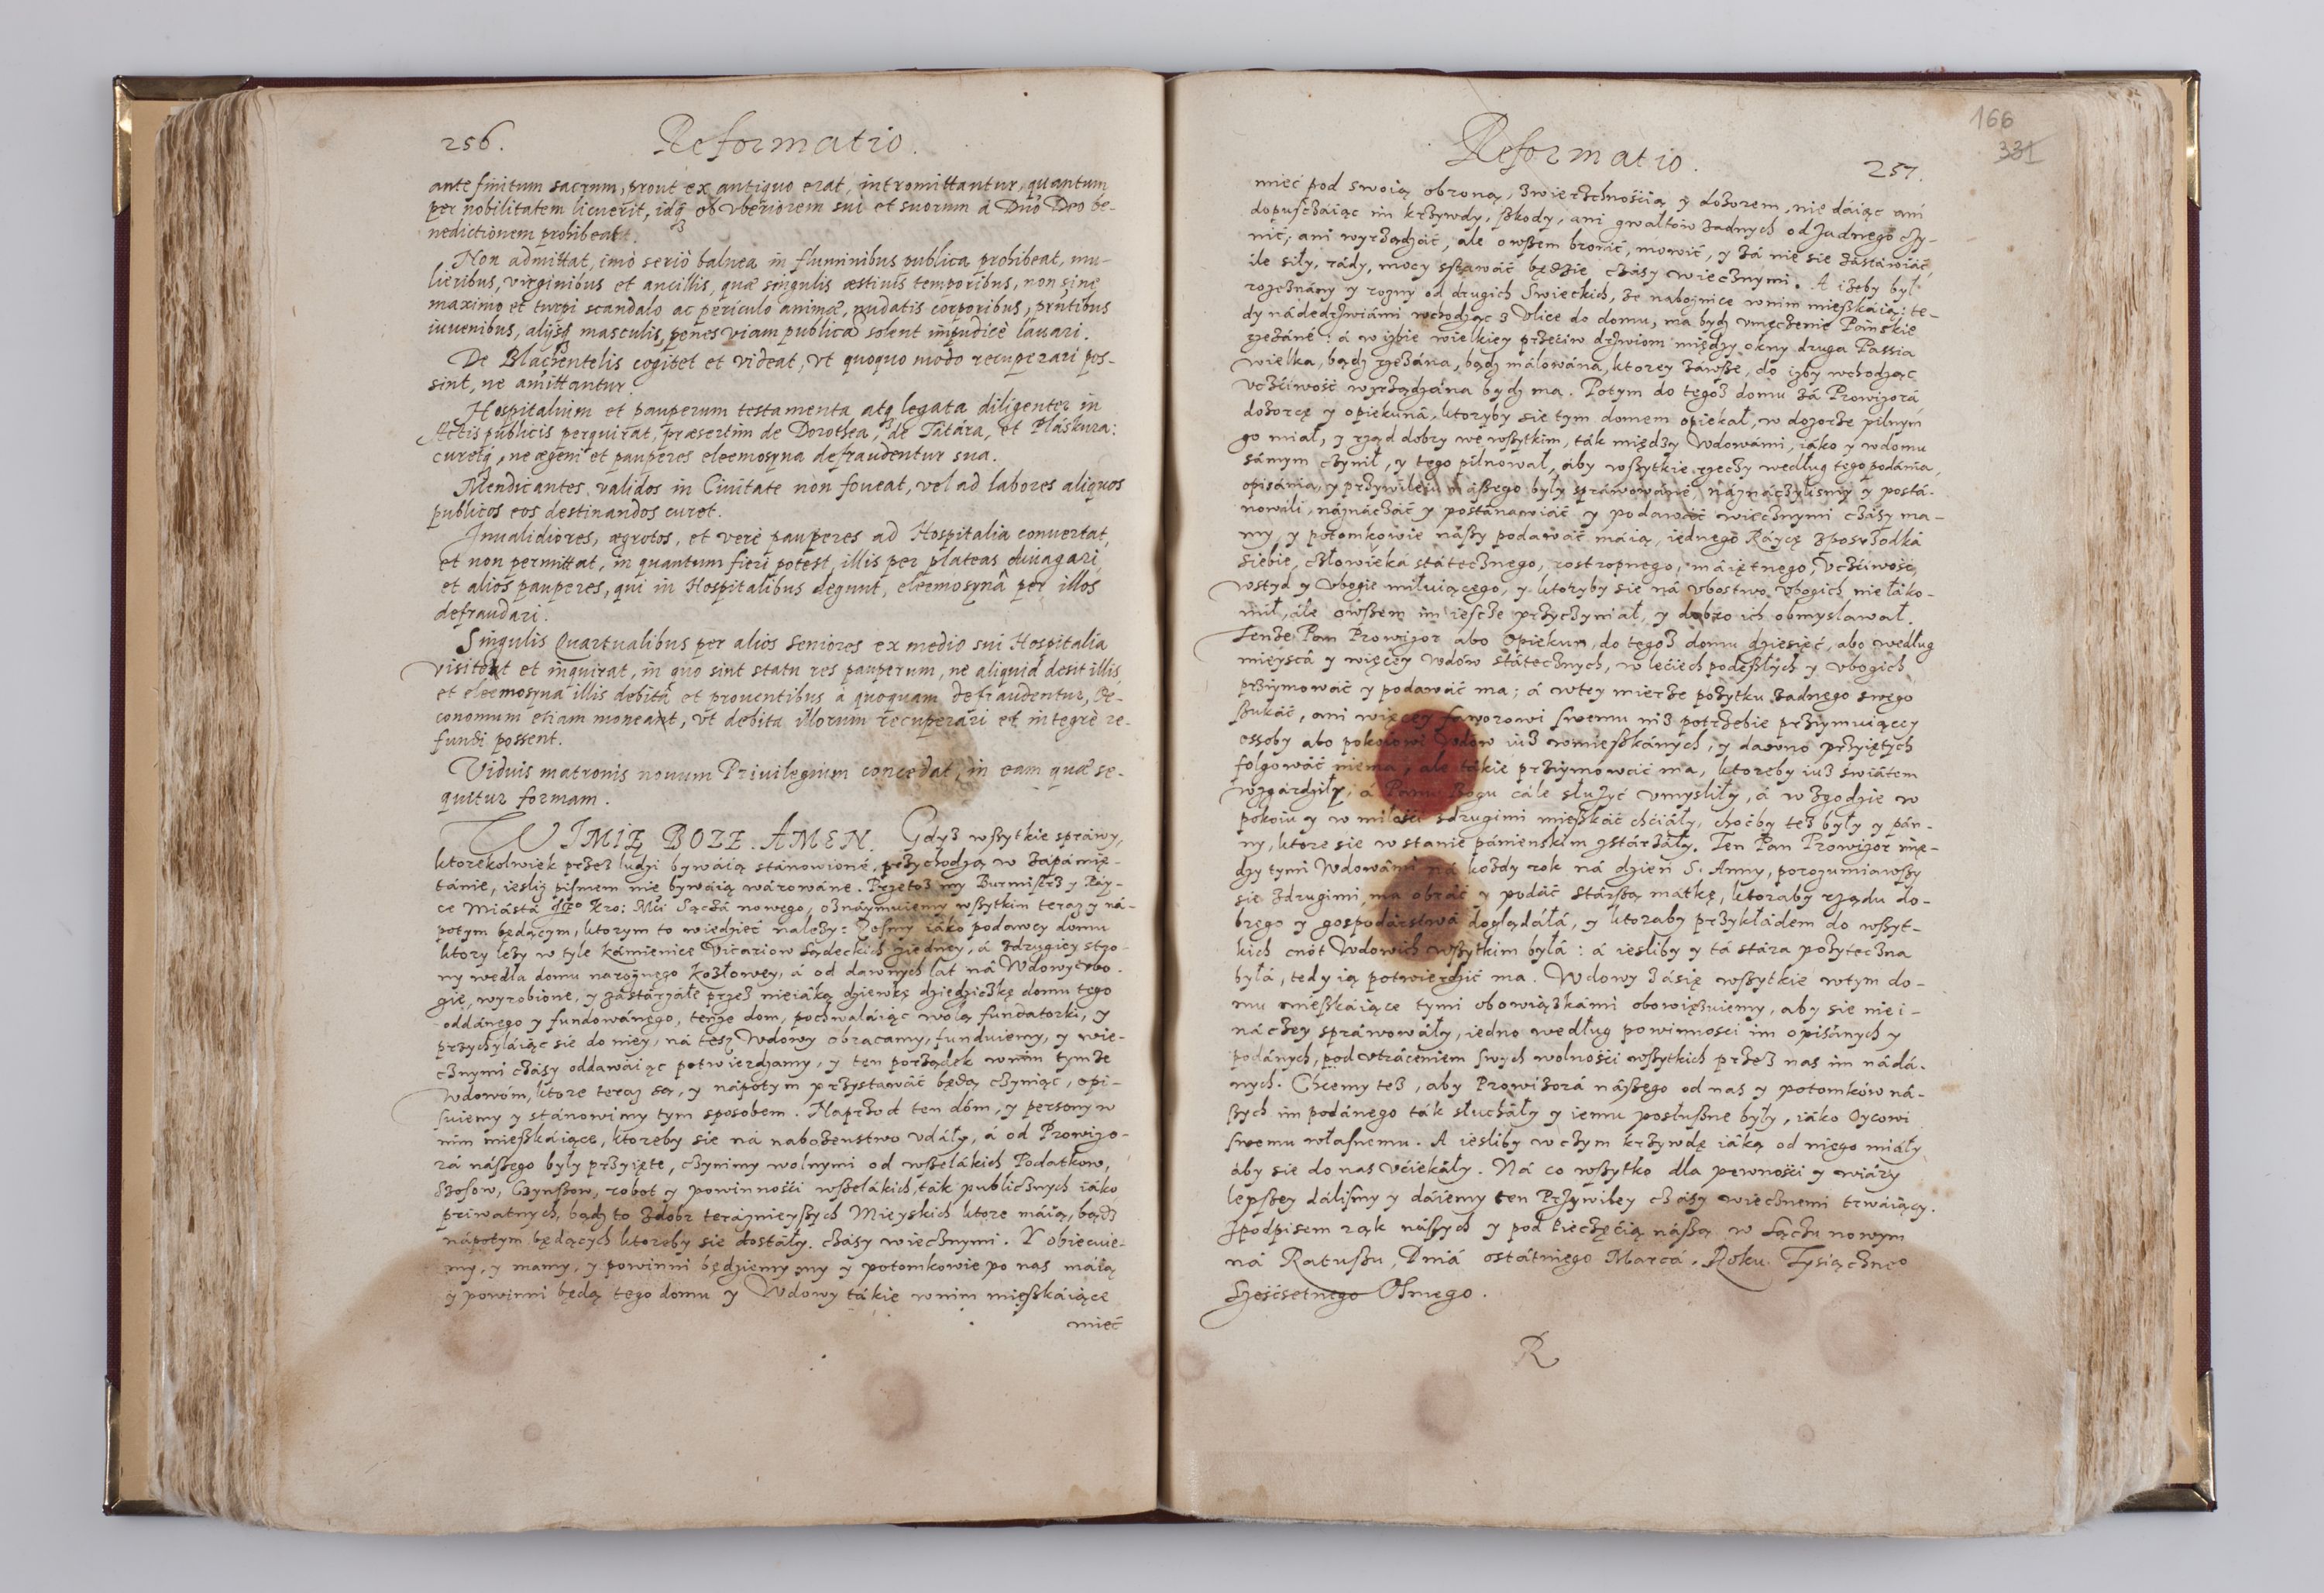 256. Reformatio.
ante finitum sacrum, prout ex antiquo erat, intromittantur, quantum
per nobilitatem licuerit, idq; ob vberiorem sui et suorum à Dnō Deo be-
nedictionem prohibeat.
Non admittat, imò seriò balnea in fluminibus publica prohibeat, mu-
lieribus, virginibus et ancillis, quæ singulis æstiuis temporibus, non sine
maximo et turpi scandalo ac periculo animæ, nudatis corporibus, prȩntibus
iuuenibus, alijsq; masculis, penes viam publicā solent impudicè lauari.
De Blachentelis cogitet et videat, vt quoquo modo recuperari pos-
sint, ne amittantur.
Hospitalium et pauperum testamenta atq; legata diligenter in
Actis publicis perquirat, præsertim de Dorothea, de Tátára, et Pláskura:
curetq;, ne ægeni et pauperes eleemosyna defraudentur sua.
Mendicantes validos in Ciuitate non foueat, vel ad labores aliquos
publicos eos destinandos curet.
Inualidiores, ægrotos, et verè pauperes ad Hospitalia conuertat,
et non permittat, in quantum fieri potest, illis per plateas diuagari,
et alios pauperes, qui in Hospitalibus degunt, eleemosynâ per illos
defraudari.
Singulis Quartualibus per alios Seniores ex medio sui Hospitalia
visitent et inquirat, in quo sint statu res pauperum, ne aliquid desit illis,
et eleemosyna illis debita et prouentibus à quoquam defraudentur, Oe-
conomum etiam moneant, vt debita illorum recuperari et integrè re-
fundi possent.
Viduis matronis nouum Priuilegium concedat, in eam quæ se-
quitur formam.
W IMIĘ BOZE. AMEN. Gdyż wßytkie spráwy,
ktorekolwiek przez ludzi bywáią stánowioné, przychodzą w zápámię-
tánie, ieśliż pismem nie bywáią wárowáne. Przetoż my Burmistrz y Ráy-
ce Miástá Kro: Mći Sączá nowego, oznáymuiemy wßytkim teraz y ná-
potym będącym, ktorym to wiedzieć należy: Iesmy iáko podawcy domu
ktory leży w tyle kámienice Vicariow Sądeckich ziedney, á zdrugiey stro-
ny wedla domu narożnego Kozłowey, á od dawnych lat ná Wdowy vbo-
gie, wyrobione, y zástárzáłe przez nieiáką dziewkę dziedziczkę domu tego
oddánego y fundowánego, tenże dom, pochwaláiąc wolą fundatorki, y
przychyláiąc sie do niey, ná też Wdowy obracamy, funduiemy, y wie-
cznymi czásy oddawáiąc potwierdzamy, y ten porządek wnim tymże
Wdowóm, ktore teraz są, y nápotym przystawáć będą czyniąc, opi-
suiemy y stánowimy tym sposobem. Naprzod ten dóm, y persony w
nim mießkáiące, ktoreby sie ná nabożenstwo vdáły, á od Prowizo-
rá náßego były przyięte, czynimy wolnymi od wßelákich Podatkow,
Szosow, Czynßow, robot y powinnośći wßelákich, ták publicznych iáko
priwatnych, bądź to zdobr terázniejßych Mieyskich ktore máią, bądź
nápotym będących ktoreby sie dostáły, czásy wiecznymi. Y obiecuie-
my, y mamy, y powinni będziemy my y potomkowie po nas máią
y powinni będą tego domu y Wdowy tákie wnim mießkáiące
mieć
166
331
Reformatio. 257.
mieć pod swoią obroną, zwierzchnośćią y dozorem, nie dáiąc ani
dopuszczáiąc im krzywdy, ßkody, ani gwałtów żadnych od żadnego czy-
nić, ani wyrządzáć, ale owßem bronić, mowić, y zá nie sie zástáwiáć,
ile siły, rády, mocy sstawáć będzie czásy wiecznymi. A iżeby był
rozeznány y rozny od drugich Swieckich, że nabożnice wnim mießkáią: te-
dy nádedrzwiámi wchodząc z Vlice do domu, ma bydź vmęczenie Páńskie
rzezáné: á w izbie wielkiey przećiw drzwiom między okny druga Passia
wielka, bądź rzezána, bądź málowána, ktorey záwße, do izby wchodząc
vczćiwość wyrządzána bydź ma. Potym do tegoż domu zá Prowizorá
dozorcę y opiekuná, ktoryby sie tym domem opiekał, w dozorze pilnym
go miał, y rząd dobry we wßytkim, ták między Wdowámi, iáko y wdomu
sámym czynił, y tego pilnował, áby wßytkie rzeczy według tego podánia,
opisánia, y przywileiu náßego były spráwowáné, náznáczylismy y postá-
nowili, náznáczáć y postánawiáć y podawáć wiecznymi czásy ma-
my, y potomkowie náßy podawáć máią, iednego Ráycę zposrzodká
siebie, człowieká státecznego, rostropnego, máiętnego, vczćiwość,
wstyd y vbogie miłuiącego, y ktoryby sie ná vbostwo vbogich nie łáko-
mił, ále owßem im iescze przyczyniał, y dobro ich obmyslawał.
Tenże Pan Prowizor abo Opiekun, do tegoż domu dziesięć, abo według
mieyscá y więcey Wdów státecznych, w lećiech podeßłych y vbogich
przyimowáć y podawáć ma; á wtey mierze pożytku żadnego swego
ßukáć, ani więcey faworowi swemu niż potrzebie przyimuiącey
ossoby abo pokoiowi Wdów iuż wmießkánych, y dawno przyiętych
folgowáć niema, ale tákie przyimowáć ma, ktoreby iuż świátem
wzgárdziły, á Pánu Bogu cále służyć vmyśliły, á w zgodzie w
pokoiu y w miłośći zdrugimi mießkáć chćiáły, choćby też były y pán-
ny, ktore sie w stanie pánieńskim zstárzáły. Ten Pan Prowizor mię-
dzy tymi Wdowámi ná każdy rok ná dzień S. Anny, porozumiawßy
sie zdrugimi, ma obráć y podáć stárßą mátkę, ktoraby rządu do-
brego y gospodárstwá doglądáłá, y ktoraby przykłádem do wßyt-
kich cnót Wdowich wßytkim byłá: á iesliby y tá stára pożyteczna
byłá, tedy ią potwierdzić ma. Wdowy zásię wßytkie wtym do-
mu mießkáiące tymi obowiązkámi obowięzuiemy, aby sie nie i-
náczey spráwowáły, iedno według powinnosci im opisánych y
podánych, pod vtráceniem swych wolnośći wßytkich przez nas im nádá-
nych. Chcemy też, aby Prowizorá náßego od nas y potomków ná-
ßych im podánego ták słucháły y iemu posłußne były, iáko Oycowi
swemu własnemu. A iesliby wczym krzywdę iáką od niego miáły
áby sie do nas vćiekáły. Ná co wßytko dla pewnośći y wiáry
lepßey dálismy y dáiemy ten Przywiley czásy wiecznemi trwáiący.
Zpodpisem rąk náßych y pod Pieczęćią náßą w Sączu nowym
ná Ratußu, Dniá ostátniego Marcá, Roku Tysiącznego
Szesćsetnego Osmego.
R